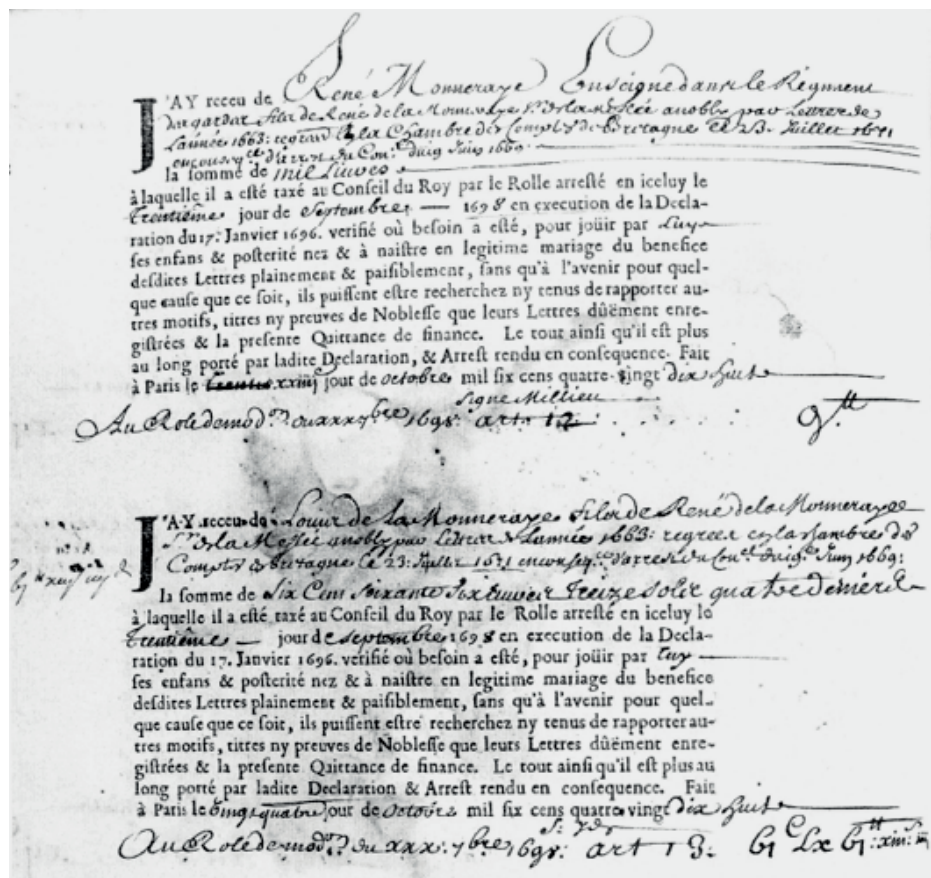 J'AY receu de René Monneraye Enseigne dans le Regiment
des gardes fils de René de la Monneraye Sr de la Meslée anobly par Lettres de
l'année 1663: registré en la Chambre des Comptes de Bretagne le 23. Juillet 1671
en conseq.ce d'arrest du Con.el du 19 Juin 1669.
la somme de mil Livres
à laquelle il a esté taxé au Conseil du Roy par le Rolle arresté en iceluy le
Trentiéme jour de Septembre 1698 en execution de la Decla-
ration du 17. Janvier 1696. verifié où besoin a esté, pour joüir par Luy
ses enfans & posterité nez & à naistre en legitime mariage du benefice
desdites Lettres plainement & paisiblement, sans qu'à l'avenir pour quel-
que cause que ce soit, ils puissent estre recherchez ny tenus de rapporter au-
tres motifs, titres ny preuves de Noblesse que leurs Lettres dûëment enre-
gistrées & la presente Quittance de finance. Le tout ainsi qu'il est plus
au long porté par ladite Declaration, & Arrest rendu en consequence. Fait
à Paris le xxiiij jour de octobre mil six cens quatre-vingt dix huit
signé Millieu
Au Role de mod.on du xxx 7bre 1698: art. 12
J'AY receu de Louis de la Monneraye fils de René de la Monneraye
Sr de la Meslée anobly par Lettres de l'année 1663: registrée en la Chambre des
Comptes de Bretagne le 23: Juillet 1671 en conseq.ce d'arrest du Con.el du 19e Juin 1669:
la somme de Six Cens soixante six livres Treize sols quatre deniers
à laquelle il a esté taxé au Conseil du Roy par le Rolle arresté en iceluy le
Trentiéme jour de septembre 1698 en execution de la Decla-
ration du 17. Janvier 1696. verifié où besoin a esté, pour joüir par luy
ses enfans & posterité nez & à naistre en legitime mariage du benefice
desdites Lettres plainement & paisiblement, sans qu'à l'avenir pour quel-
que cause que ce soit, ils puissent estre recherchez ny tenus de rapporter au-
tres motifs, titres ny preuves de Noblesse que leurs Lettres dûëment enre-
gistrées & la presente Quittance de finance. Le tout ainsi qu'il est plus au
long porté par ladite Declaration & Arrest rendu en consequence. Fait
à Paris le vingt quatre jour de Octobre mil six cens quatre vingt dix huit
Au Role de mod.on du xxx. 7bre 1698: art 13.